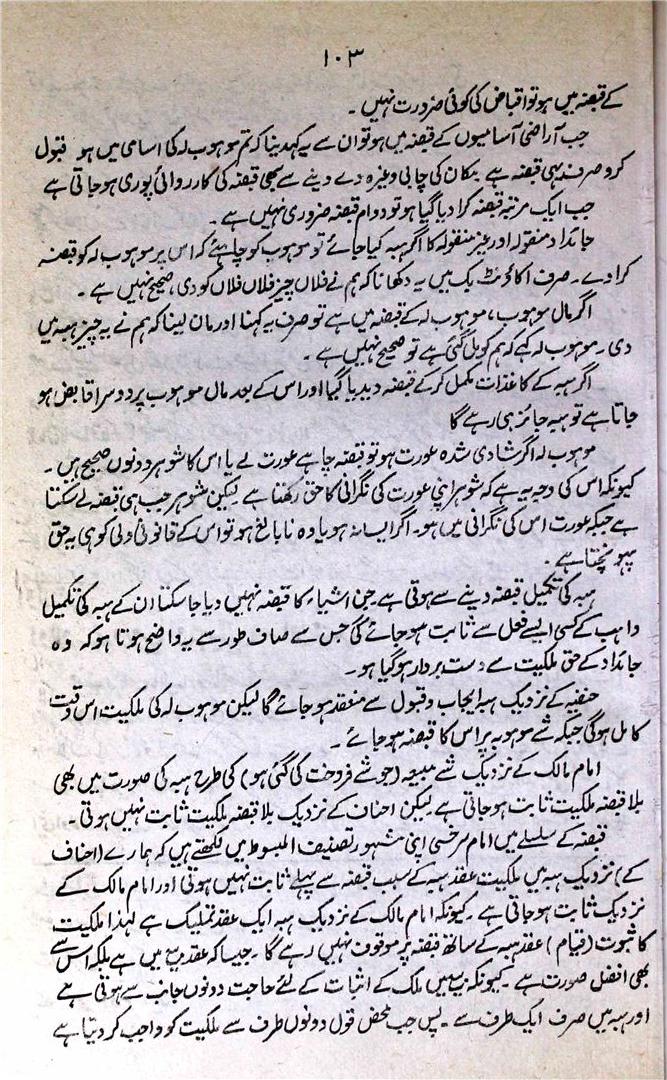 ۱۰۳
کے قبضہ میں ہو تو اقباض کی کوئی ضرورت نہیں ۔
جب آراضی آسامیوں کے قبضہ میں ہو تو ان سے یہ کہدینا کہ تم موہوب لہ کی اسامی میں ہو قبول
کرو صرف یہی قبضہ ہے مکان کی چابی وغیرہ دے دینے سے بھی قبضہ کی کارروائی پوری ہو جاتی ہے
جب ایک مرتبہ قبضہ کرا دیا گیا ہو تو دوام قبضہ ضروری نہیں ہے ۔
جائداد منقولہ اور غیر منقولہ کا اگر ہبہ کیا جائے تو موہوب کو چاہیئے کہ اس پر موہوب لہ کو قبضہ
کرا دے ۔ صرف اکاؤنٹ بک میں یہ دکھانا کہ ہم نے فلاں چیز فلاں فلاں کو دی ، صحیح نہیں ہے ۔
اگر مال موہوب ، موہوب لہ کے قبضہ میں ہے تو صرف یہ کہنا اور مان لینا کہ ہم نے یہ چیز ہبہ میں
دی ۔ موہوب لہ کہے کہ ہم کو مل گئی ہے تو صحیح نہیں ہے ۔
اگر ہبہ کے کاغذات مکمل کر کے قبضہ دیدیا گیا اور اس کے بعد مال موہوب پر دوسرا قابض ہو
جاتا ہے تو ہبہ جائز ہی رہے گا
موہوب لہ اگر شادی شدہ عورت ہو تو قبضہ چاہے عورت لے یا اس کا شوہر دونوں صحیح ہیں ۔
کیونکہ اس کی وجہ یہ ہے کہ شوہر اپنی عورت کی نگرانی کا حق رکھتا ہے لیکن شوہر جب ہی قبضہ لے سکتا
ہے جبکہ عورت اس کی نگرانی میں ہو ۔ اگر ایسا نہ ہو یا وہ نابالغ ہو تو اس کے قانونی ولی کو ہی یہ حق
پہونچتا ہے ۔
ہبہ کی تکمیل قبضہ دینے سے ہوتی ہے جن اشیاء کا قبضہ نہیں دیا جا سکتا ان کے ہبہ کی تکمیل
واہب کے کسی ایسے فعل سے ثابت ہو جائے گی جس سے صاف طور سے یہ واضح ہوتا ہو کہ وہ
جائداد کے حق ملکیت سے دست بردار ہو گیا ہو ۔
حنفیہ کے نزدیک ہبہ ایجاب و قبول سے منعقد ہو جائے گا لیکن موہوب لہ کی ملکیت اس وقت
کامل ہوگی جبکہ شے موہوبہ پر اس کا قبضہ ہو جائے ۔
امام مالک کے نزدیک شے مبیعہ (جو شے فروخت کی گئی ہو) کی طرح ہبہ کی صورت میں بھی
بلا قبضہ ملکیت ثابت ہو جاتی ہے لیکن احناف کے نزدیک بلا قبضہ ملکیت ثابت نہیں ہوتی ۔
قبضہ کے سلسلے میں امام سرخسی اپنی مشہور تصنیف المبسوط میں لکھتے ہیں کہ ہمارے (احناف
کے) نزدیک ہبہ میں ملکیت عقد ہبہ کے سبب قبضہ سے پہلے ثابت نہیں ہوتی اور امام مالک کے
نزدیک ثابت ہو جاتی ہے ۔ کیونکہ امام مالک کے نزدیک ہبہ ایک عقد تملیک ہے لہذا ملکیت
کا ثبوت (قیام) عقد ہبہ کے ساتھ قبضہ پر موقوف نہیں رہے گا ۔ جیسا کہ عقد بیع میں ہے بلکہ اس سے
بھی افضل صورت ہے ۔ کیونکہ بیع میں ملک کے اثبات کے لئے حاجت دونوں جانب سے ہوتی ہے
اور ہبہ میں صرف ایک طرف سے ۔ پس جب محض قول دونوں طرف سے ملکیت کو واجب کر دیتا ہے